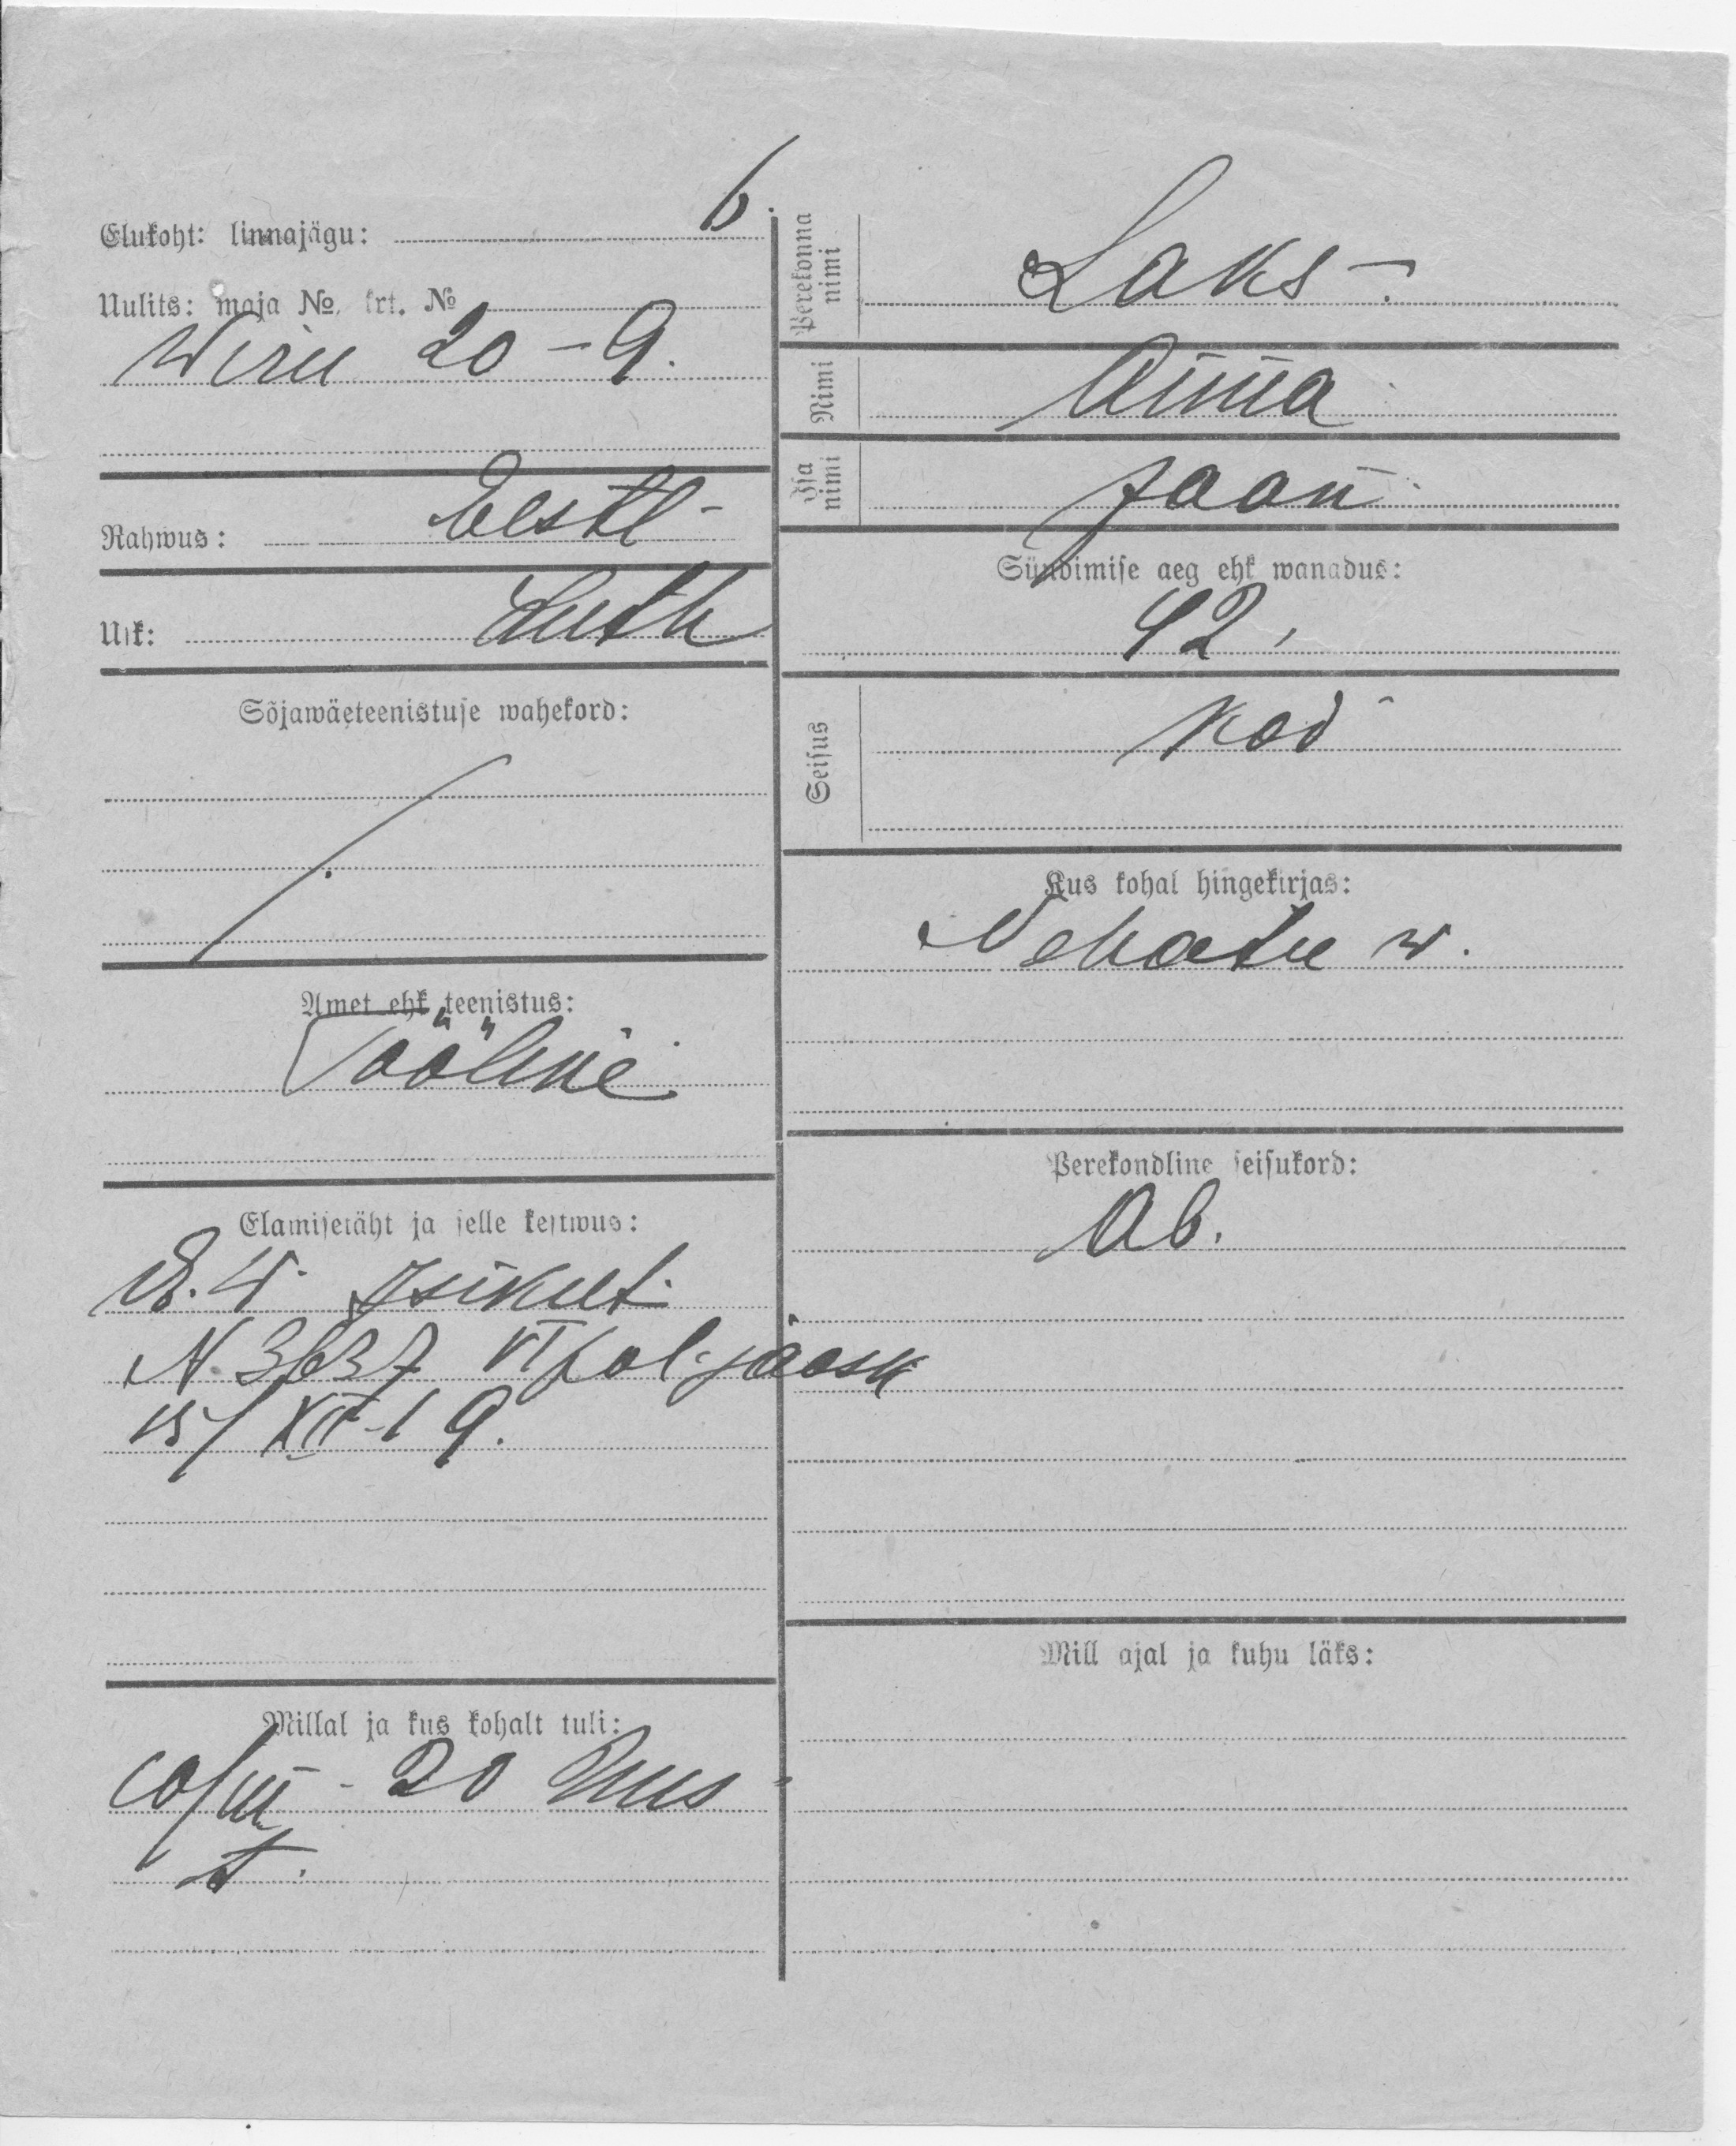 Elukoht: linnajägu: 6.
Uulits: maja No. krt. No
Wiru 20 - 9.
Rahwus: Eestl -
Usk: Luth
Sõjawäeteenistuse wahekord:
Amet ehk teenistus:
Tööline
Elamisetäht ja selle kestwus:
E. W. Isikut.
N. 3637 VI pol. jaosk
15/XII-19.
Millal ja kus kohalt tuli:
20
Perekonna nimi
Laks -
Nimi
Anna
Isa nimi
Jaan
Sündimise aeg ehk wanadus:
42,
Seisus
Kod
Kus kohal hingekirjas:
Nehatu w.
Perekondline seisukord:
Ab.
Mill ajal ja kuhu läks: